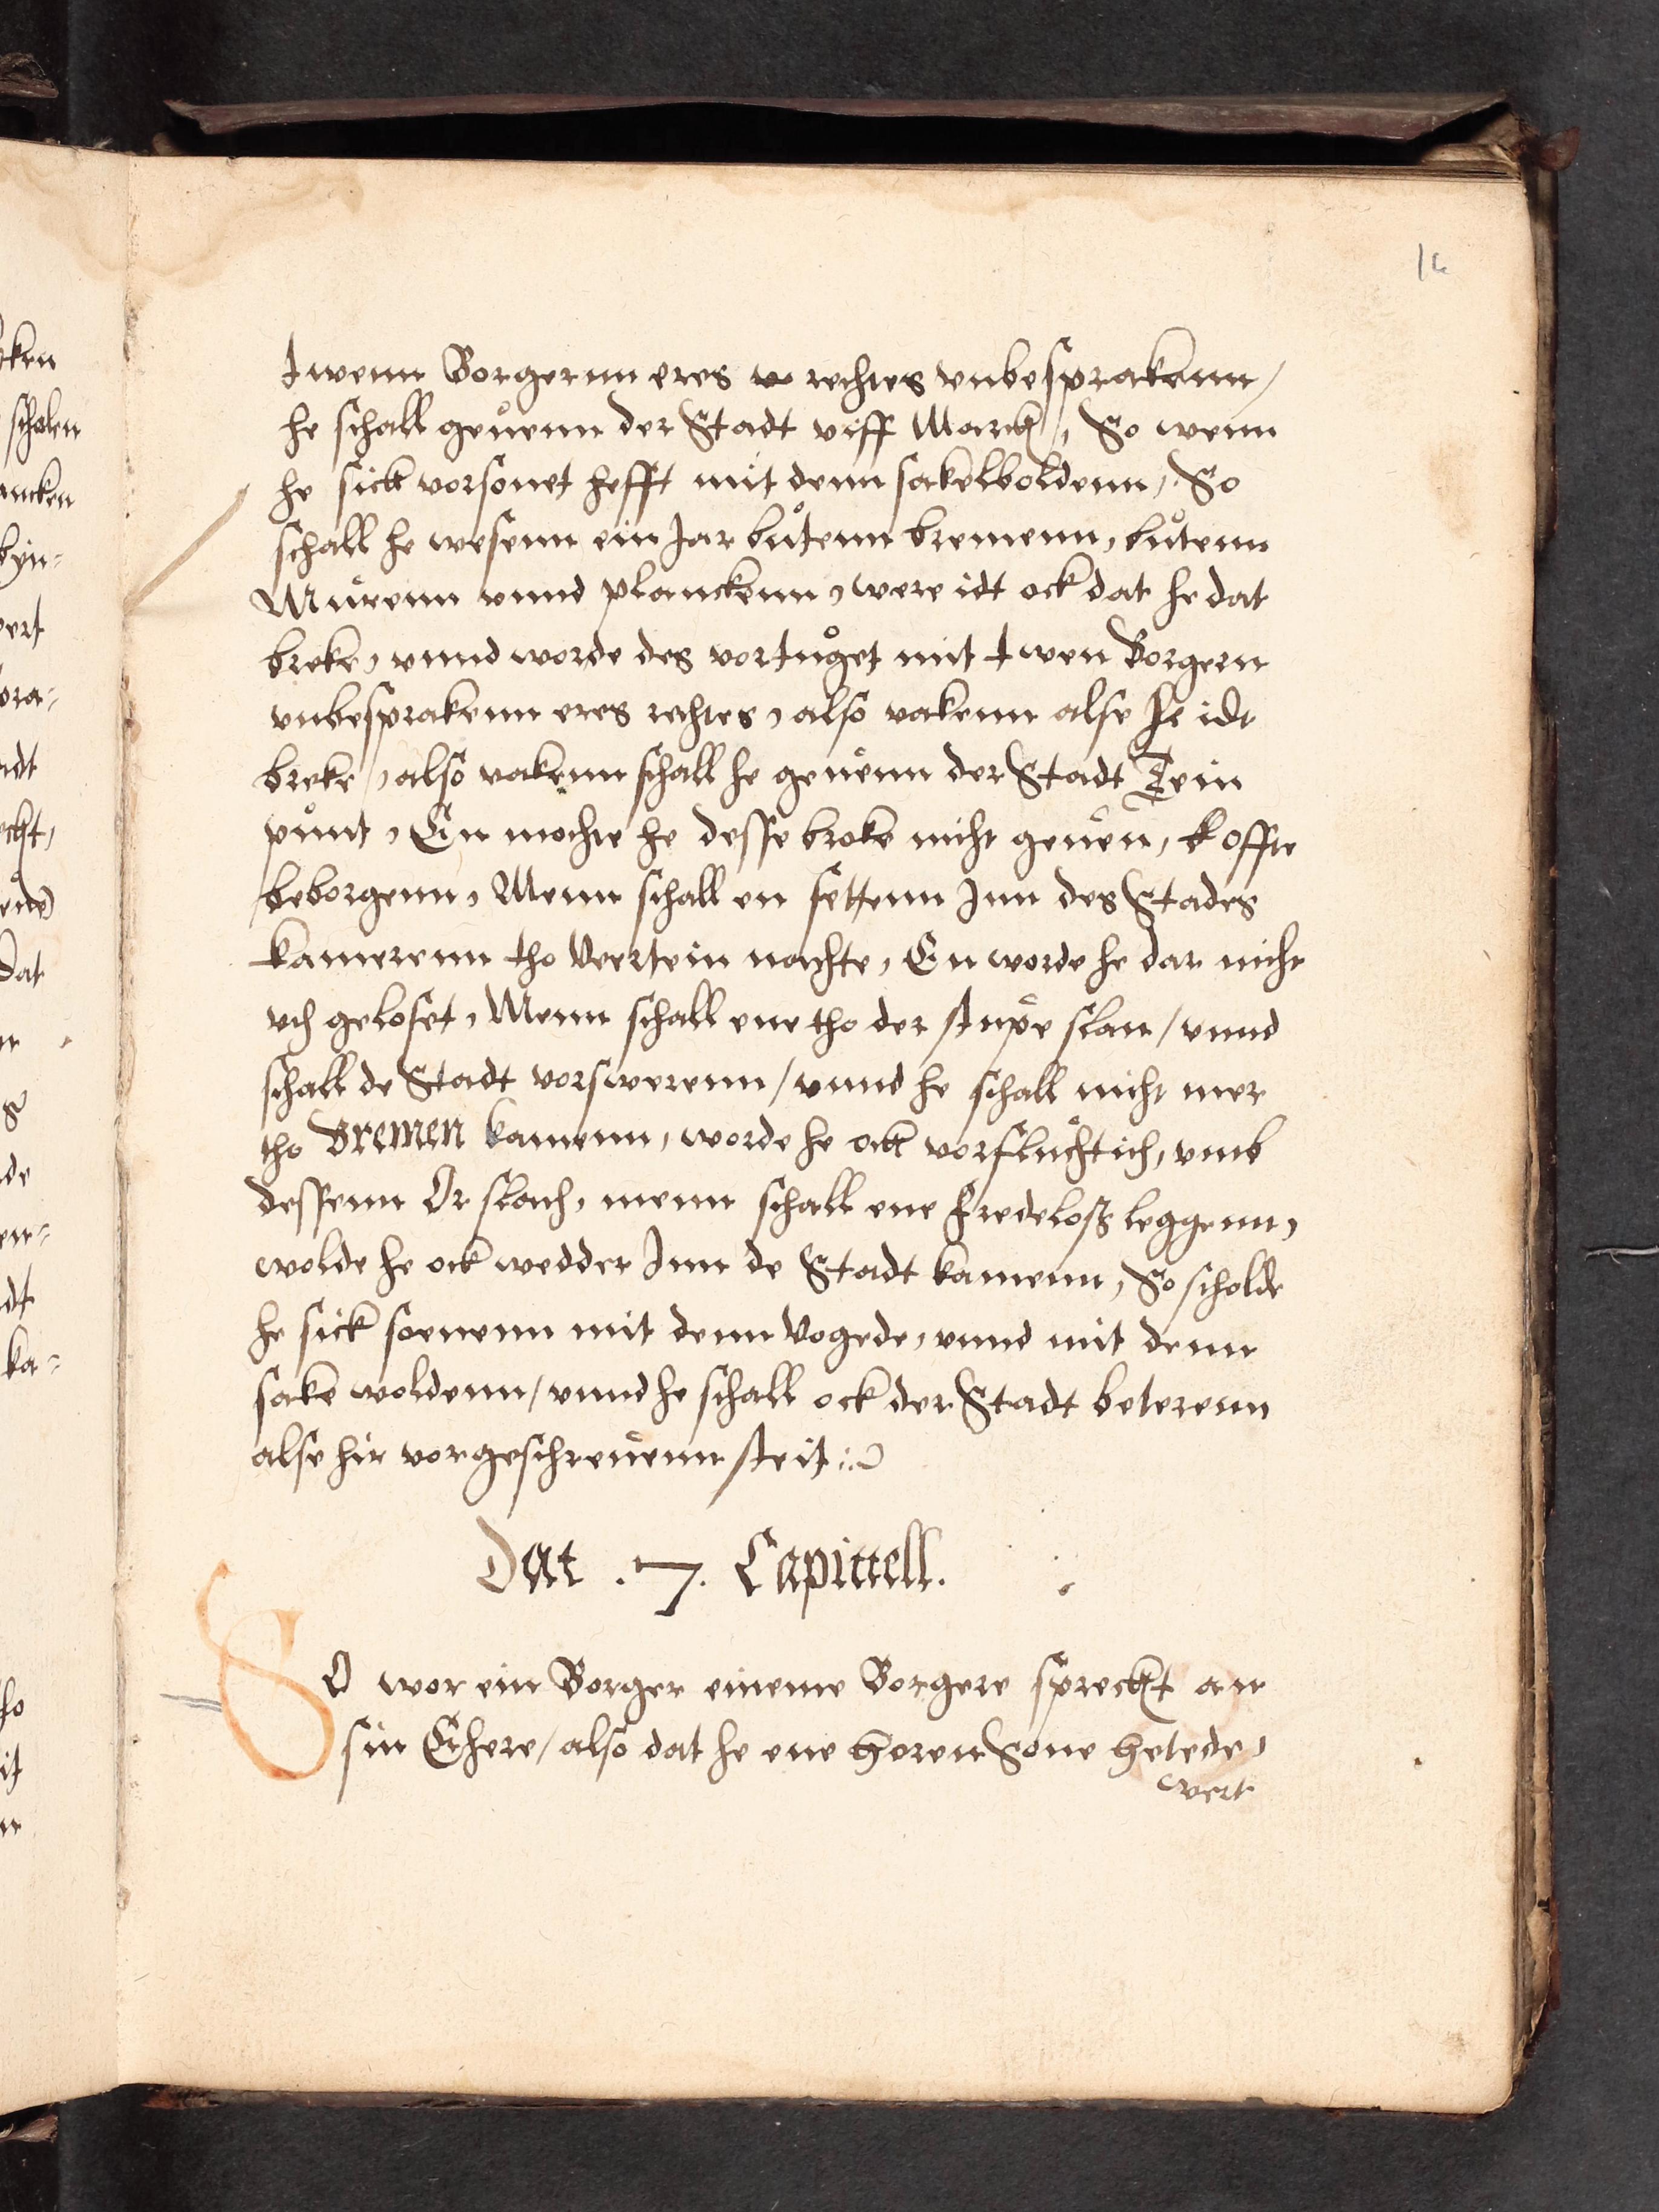 16
twenn Borgernn eres rechtes vnbesprakenn /
he schall geuenn der Stadt viff Marck /, So wenn
he sick vorsonet hefft mit denn sakelboldenn, So
schall he wesenn ein Jar bůtenn bremenn, bůtenn
Můrenn vnnd planckenn, were idt ock dat he dat
breke, vnnd worde des vortuget mit twen Borgern
vnbesprakenn eres rechtes, also vakenn alse he idt
breke /, also vakenn schall he geuenn der Stadt Tein
půnt, En mochte he desse broke nicht geuen, offte
beborgenn, Menn schall en settenn Jnn des Stades
kamerenn tho Veertein nachte, En worde he dar nicht
vth geloset, Menn schall ene tho der stupe slan / vnnd
schall de Stadt vorswerenn / vnnd he schall nicht mer
tho Bremen kamenn, worde he ock vorfluchtich, vmb
dessenn Or slach, menn schall ene fredeloß leggenn,
wolde he ock wedder Jnn de Stadt kamenn, So scholde
he sick soenenn mit denn Vogede, vnnd mit denn
sake woldenn / vnnd he schall ock der Stadt beterenn
alse hir vorgeschreuenn steit :.
Dat .7. Capittell.
SO wor ein Borger eineme Borgere spreckt an
sin Ehere / also dat he ene Horen Sone hetede,
wert